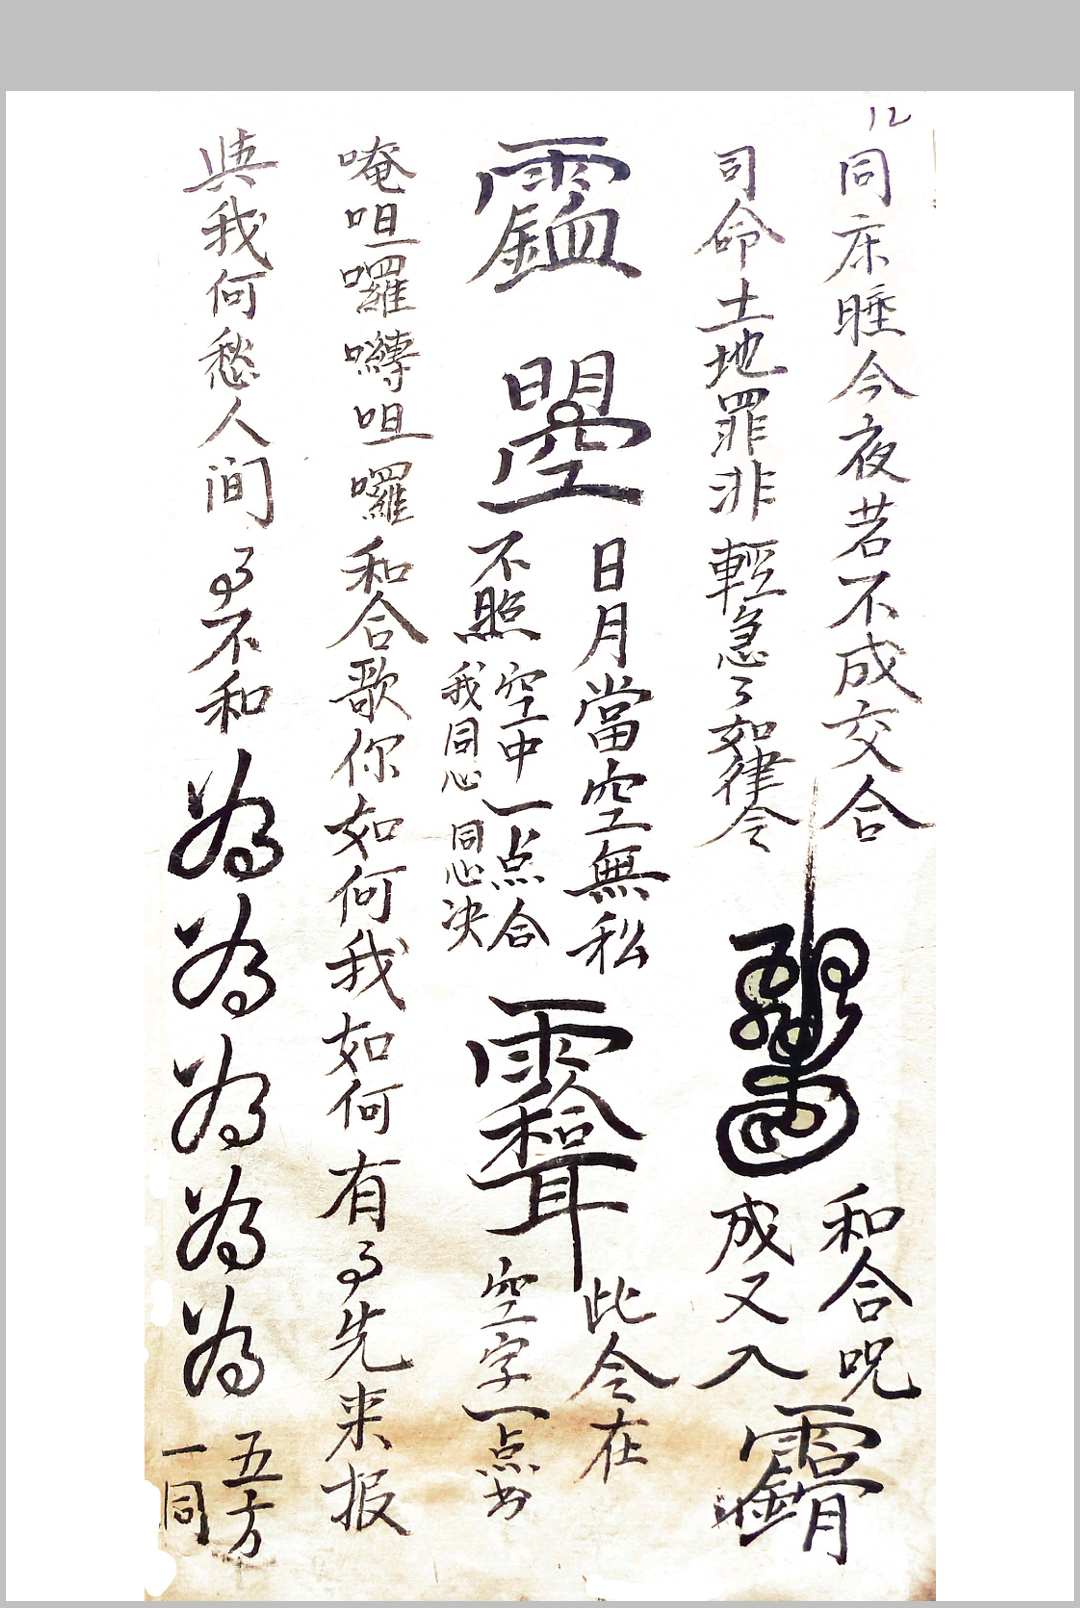 12
同床睡今夜若不成交合
司命土地罪非輕急々如律令
和合咒
成又入
日月當空無私
不照
空中一点合
我同心同心决
此令在
空字一点出
唵呾囉囀呾囉和合歌你如何我如何有事先来报
與我何愁人间事不和為為為為為
五方
一同